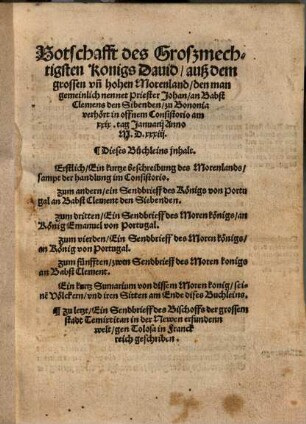 Botschafft des Groszmech-
tigsten Konigs Dauid / auß dem
grossen vñ hohen Morenland / den man
gemeinlich nennet Priester Johan / an Babst
Clemens den Sibenden / zu Bononia
verhört in offnem Consistorio am
xxix. tag Januarij Anno
M. D. xxxiij.
¶ Dieses Büchleins jnhalt.
Erstlich / Ein kurtze beschreibung des Morenlands /
sampt der handlung im Consistorio.
zum andern / ein Sendbrieff des Königs von Portu
gal an Babst Clement den Siebenden.
zum dritten / Ein Sendbrieff des Moren königs / an
König Emanuel von Portugal.
zum vierden / Ein Sendbrieff des Moren königs /
an König von Portugal.
zum fünfften / zwen Sendbrieff des Moren konigs
an Babst Clement.
Ein kurtz Sumarium von dissem Moren konig / sei-
nẽ Völckern / vnd iren Sitten am Ende dises Buchleins.
¶ zu letze / Ein Sendbrieff des Bischoffs der grossem
stadt Temixtitan in der Newen erfundenn
welt / gen Tolosa in Franck
reich geschriben.